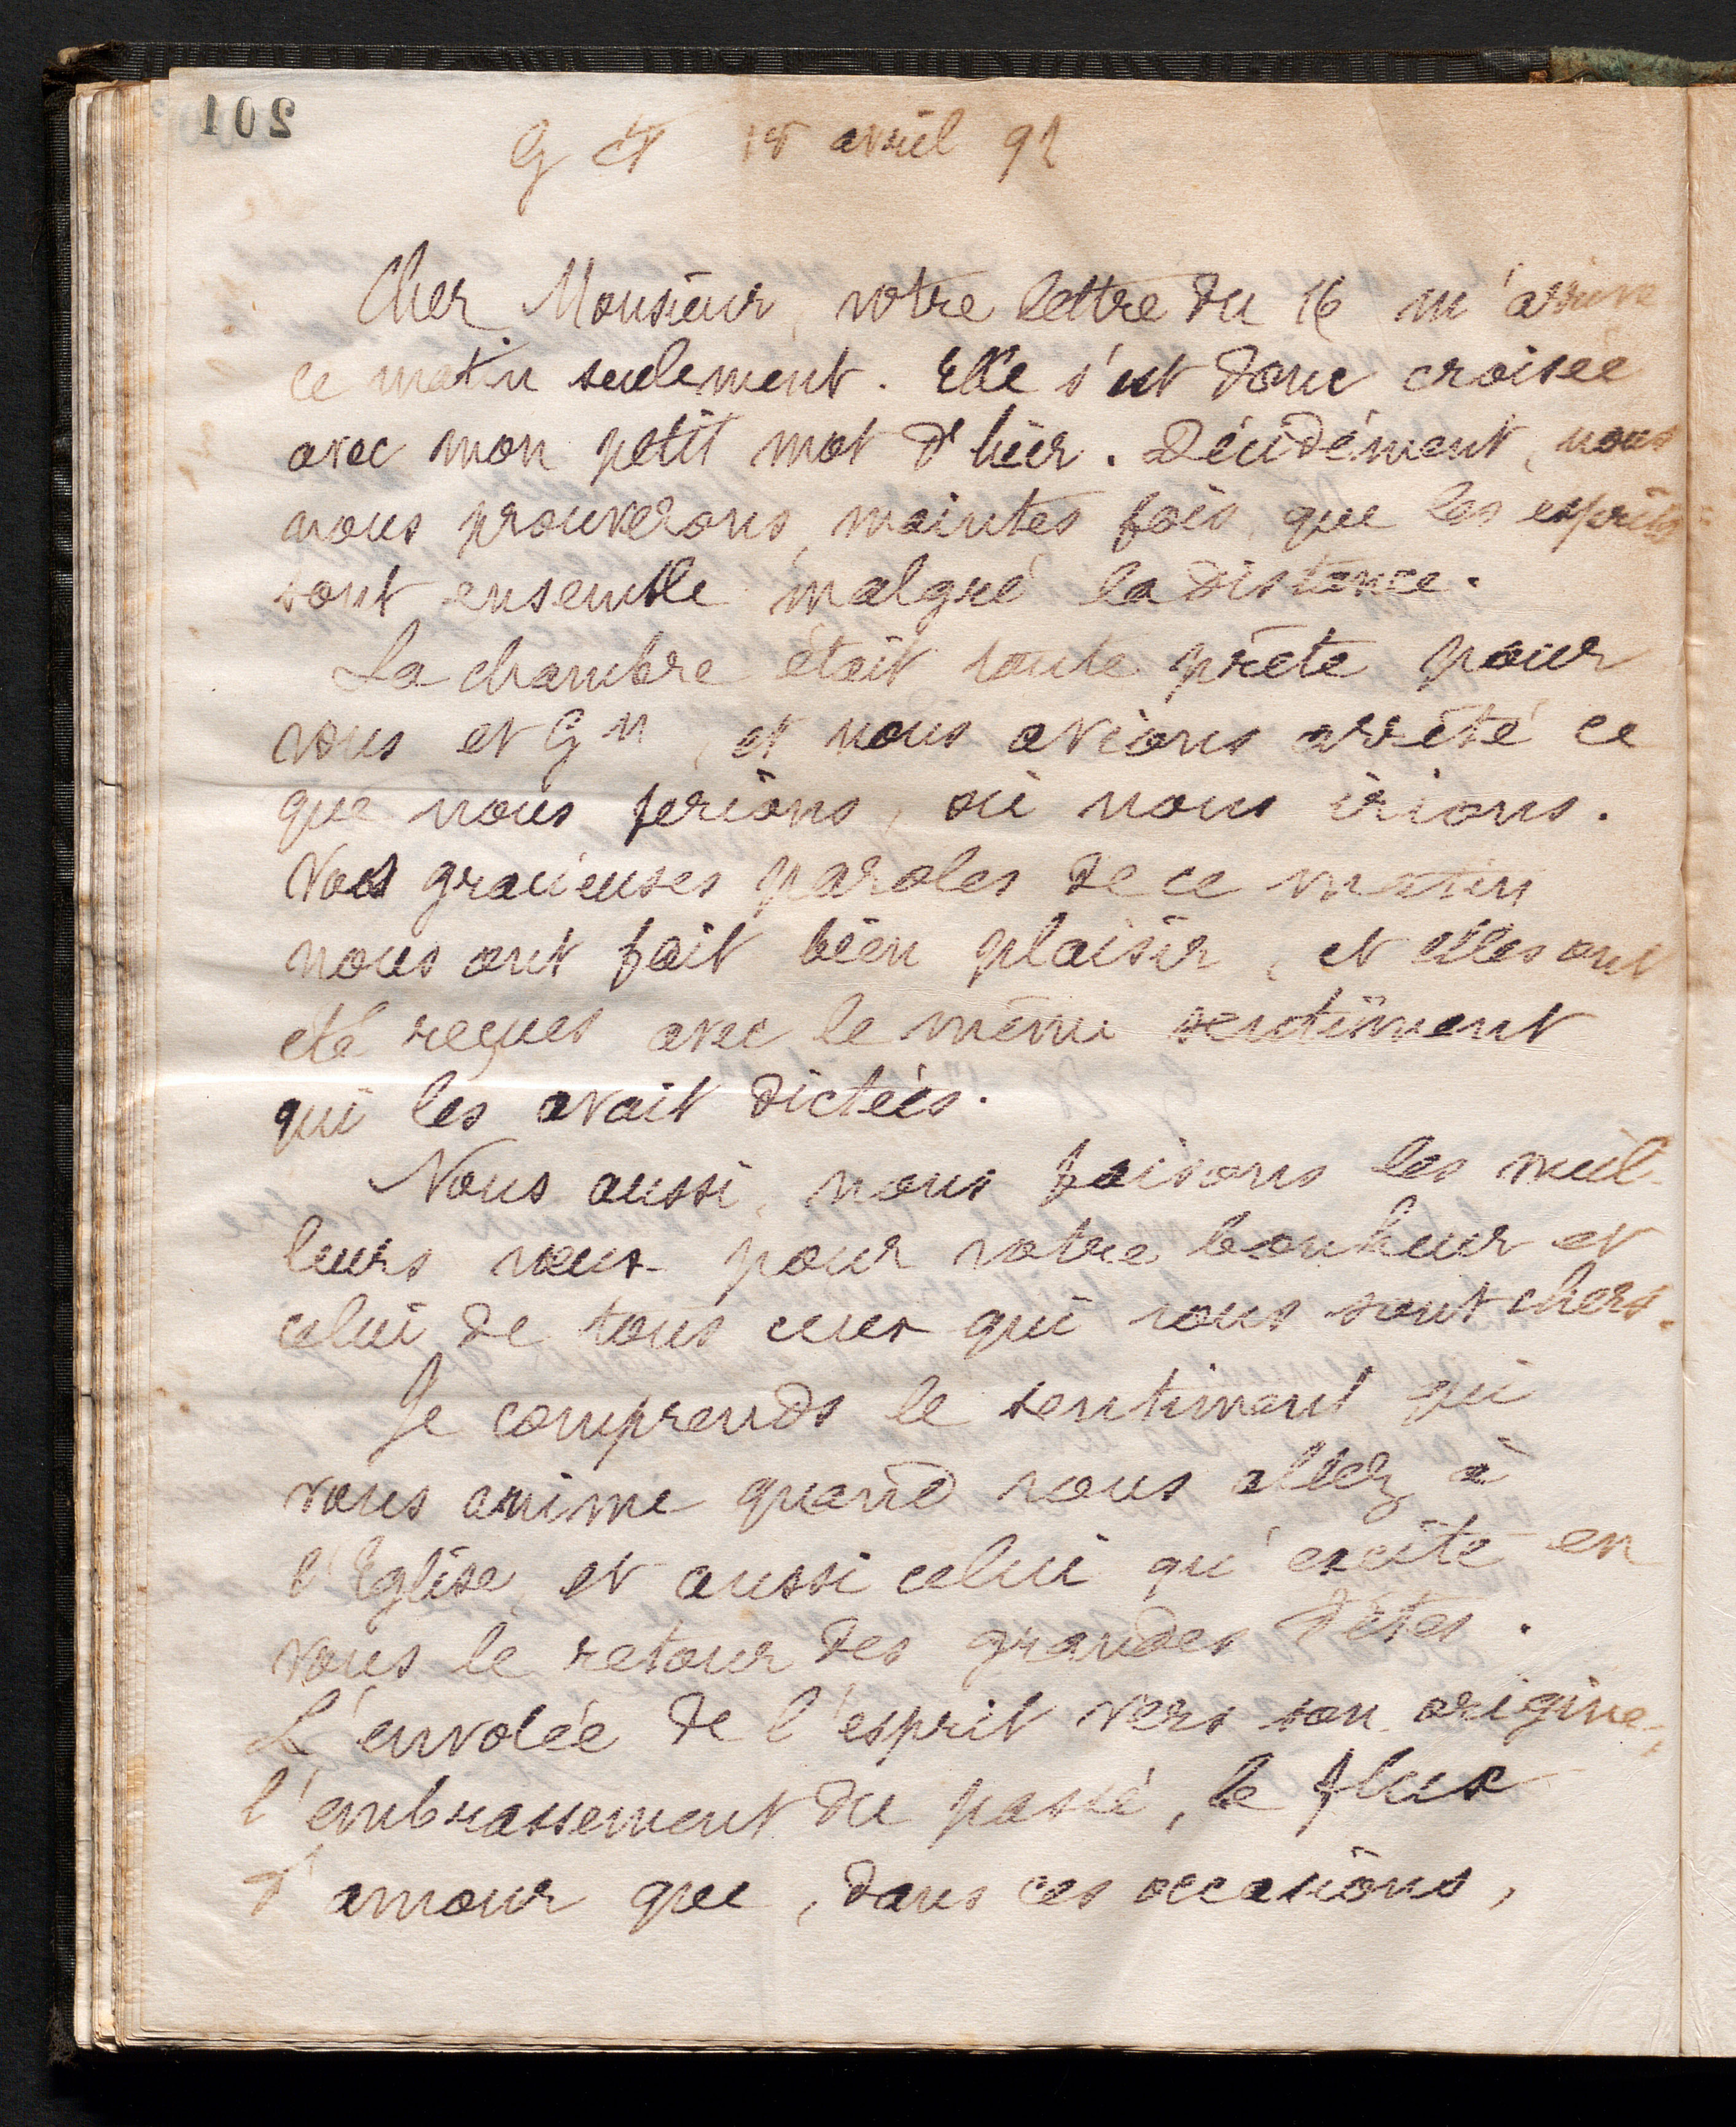 201
G 18 avril 92
Cher Monsieur, votre lettre du 16 m'arrive
ce matin seulement. Elle s'est donc croisée
avec mon petit mot d'hier. Décidément, nous
nous prouverons, maintes fois, que les esprits
sont ensemble malgré la distance.
La chambre était toute prête pour
vous et Gn, et nous avions arrêté ce
que nous ferions, où nous irions.
Vos gracieuses paroles de ce matin
nous ont fait bien plaisir, et elles ont
été reçues avec le même sentiment
qui les avait dictées.
Nous aussi, nous faisons les meil-
leurs vœux pour votre bonheur et
celui de tous ceux qui vous sont chers.
Je comprends le sentiment qui
vous anime quand vous allez à
l'Eglise, et aussi celui qu'excite en
vous le retour des grandes Fêtes.
L'envolée de l'esprit vers son origine,
l'embrassement du passé, le flux
d'amour que, dans ces occasions,